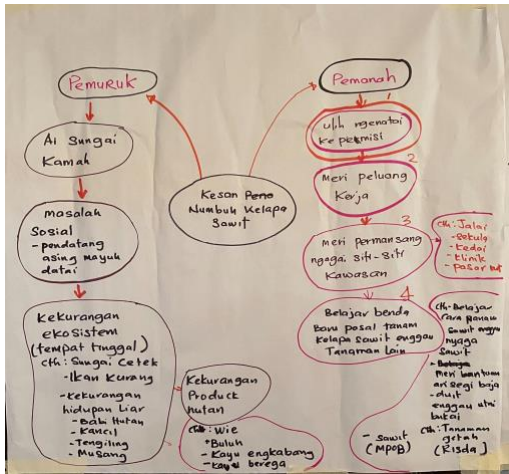 Pemuruk
Ai Sungai
Kamah
masalah
Sosial
- pendatang
asing mayuh
datai
Kekurangan
ekosistem
(tempat tinggal)
cth: Sungai Cetek
- Ikan Kurang
- kekurangan
hidupan Liar
- Babi Hutan
- Kancil
- Tengiling
- Musang
Kekurangan
Product
hutan
cth: Wie
* Buluh
- Kayu engkabang
- kayu berega
Kesan
Numbuh Kelapa
Sawit
Pemanah
1
ulih ngenatai
ke permisi
2
Meri peluang
Kerja
3
Meri permansang
ngagai siti-siti
Kawasan
cth: Jalai
- Sekula
- Kedai
- klinik
- pasar
4
Belajar benda
baru pasal tanam
Kelapa Sawit enggau
Tanaman Lain
cth: Belajar
cara nanam
Sawit enggau
nyaga
Sawit
-
meri bantuan
ari segi baja
- duit
enggau utai
bukai
cth: Tanaman
getah
(Risda)
- sawit
(MPOB)